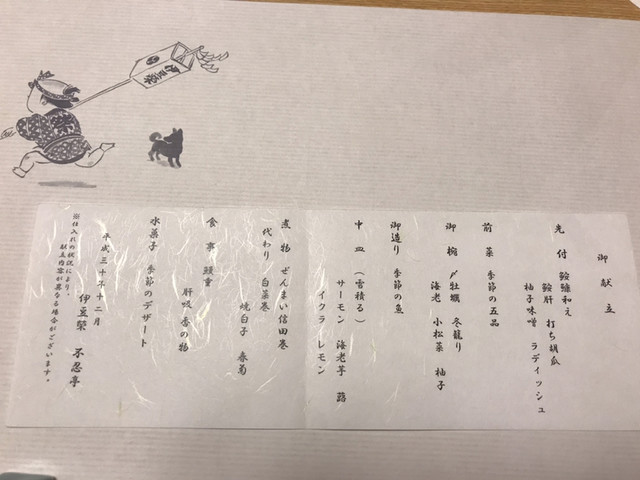 御献立
先付 鮟鱇和え 打ち胡瓜
鮟肝 ラディッシュ
柚子味噌
前菜 季節の五品
御椀 〆牡蠣 冬籠り
海老 小松菜 柚子
御造り 季節の魚
中皿 (雪積る)
サーモン 海老芋 蕗
イクラ レモン
煮物 ぜんまい信田巻
代わり 白菜巻
焼白子 春菊
食事 鰻重
肝吸 香の物
水菓子 季節のデザート
平成三十年十二月
伊豆榮 不忍亭
※仕入れの状況により、
献立内容が異なる場合がございます。
伊豆榮
榮